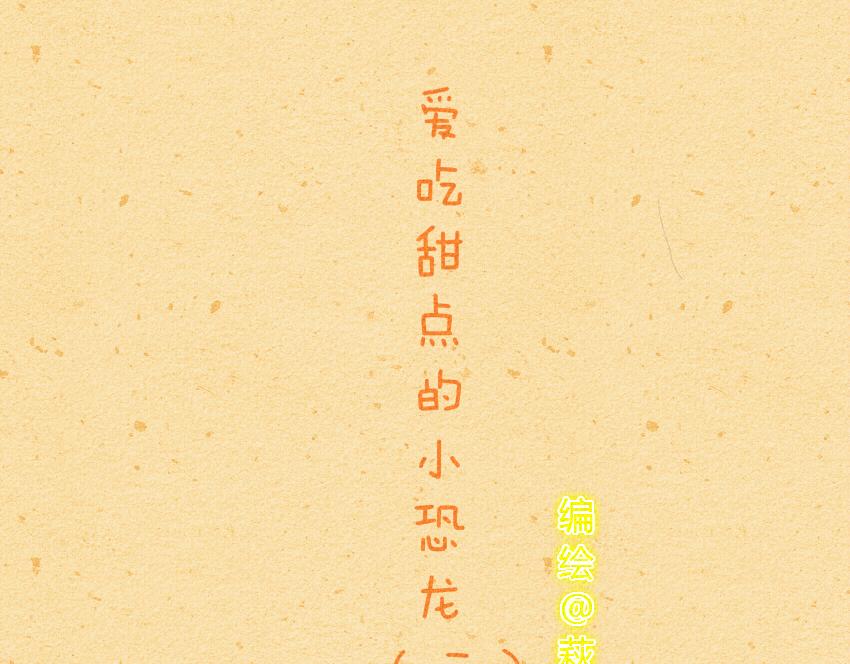 爱吃甜点的小恐龙
编绘@